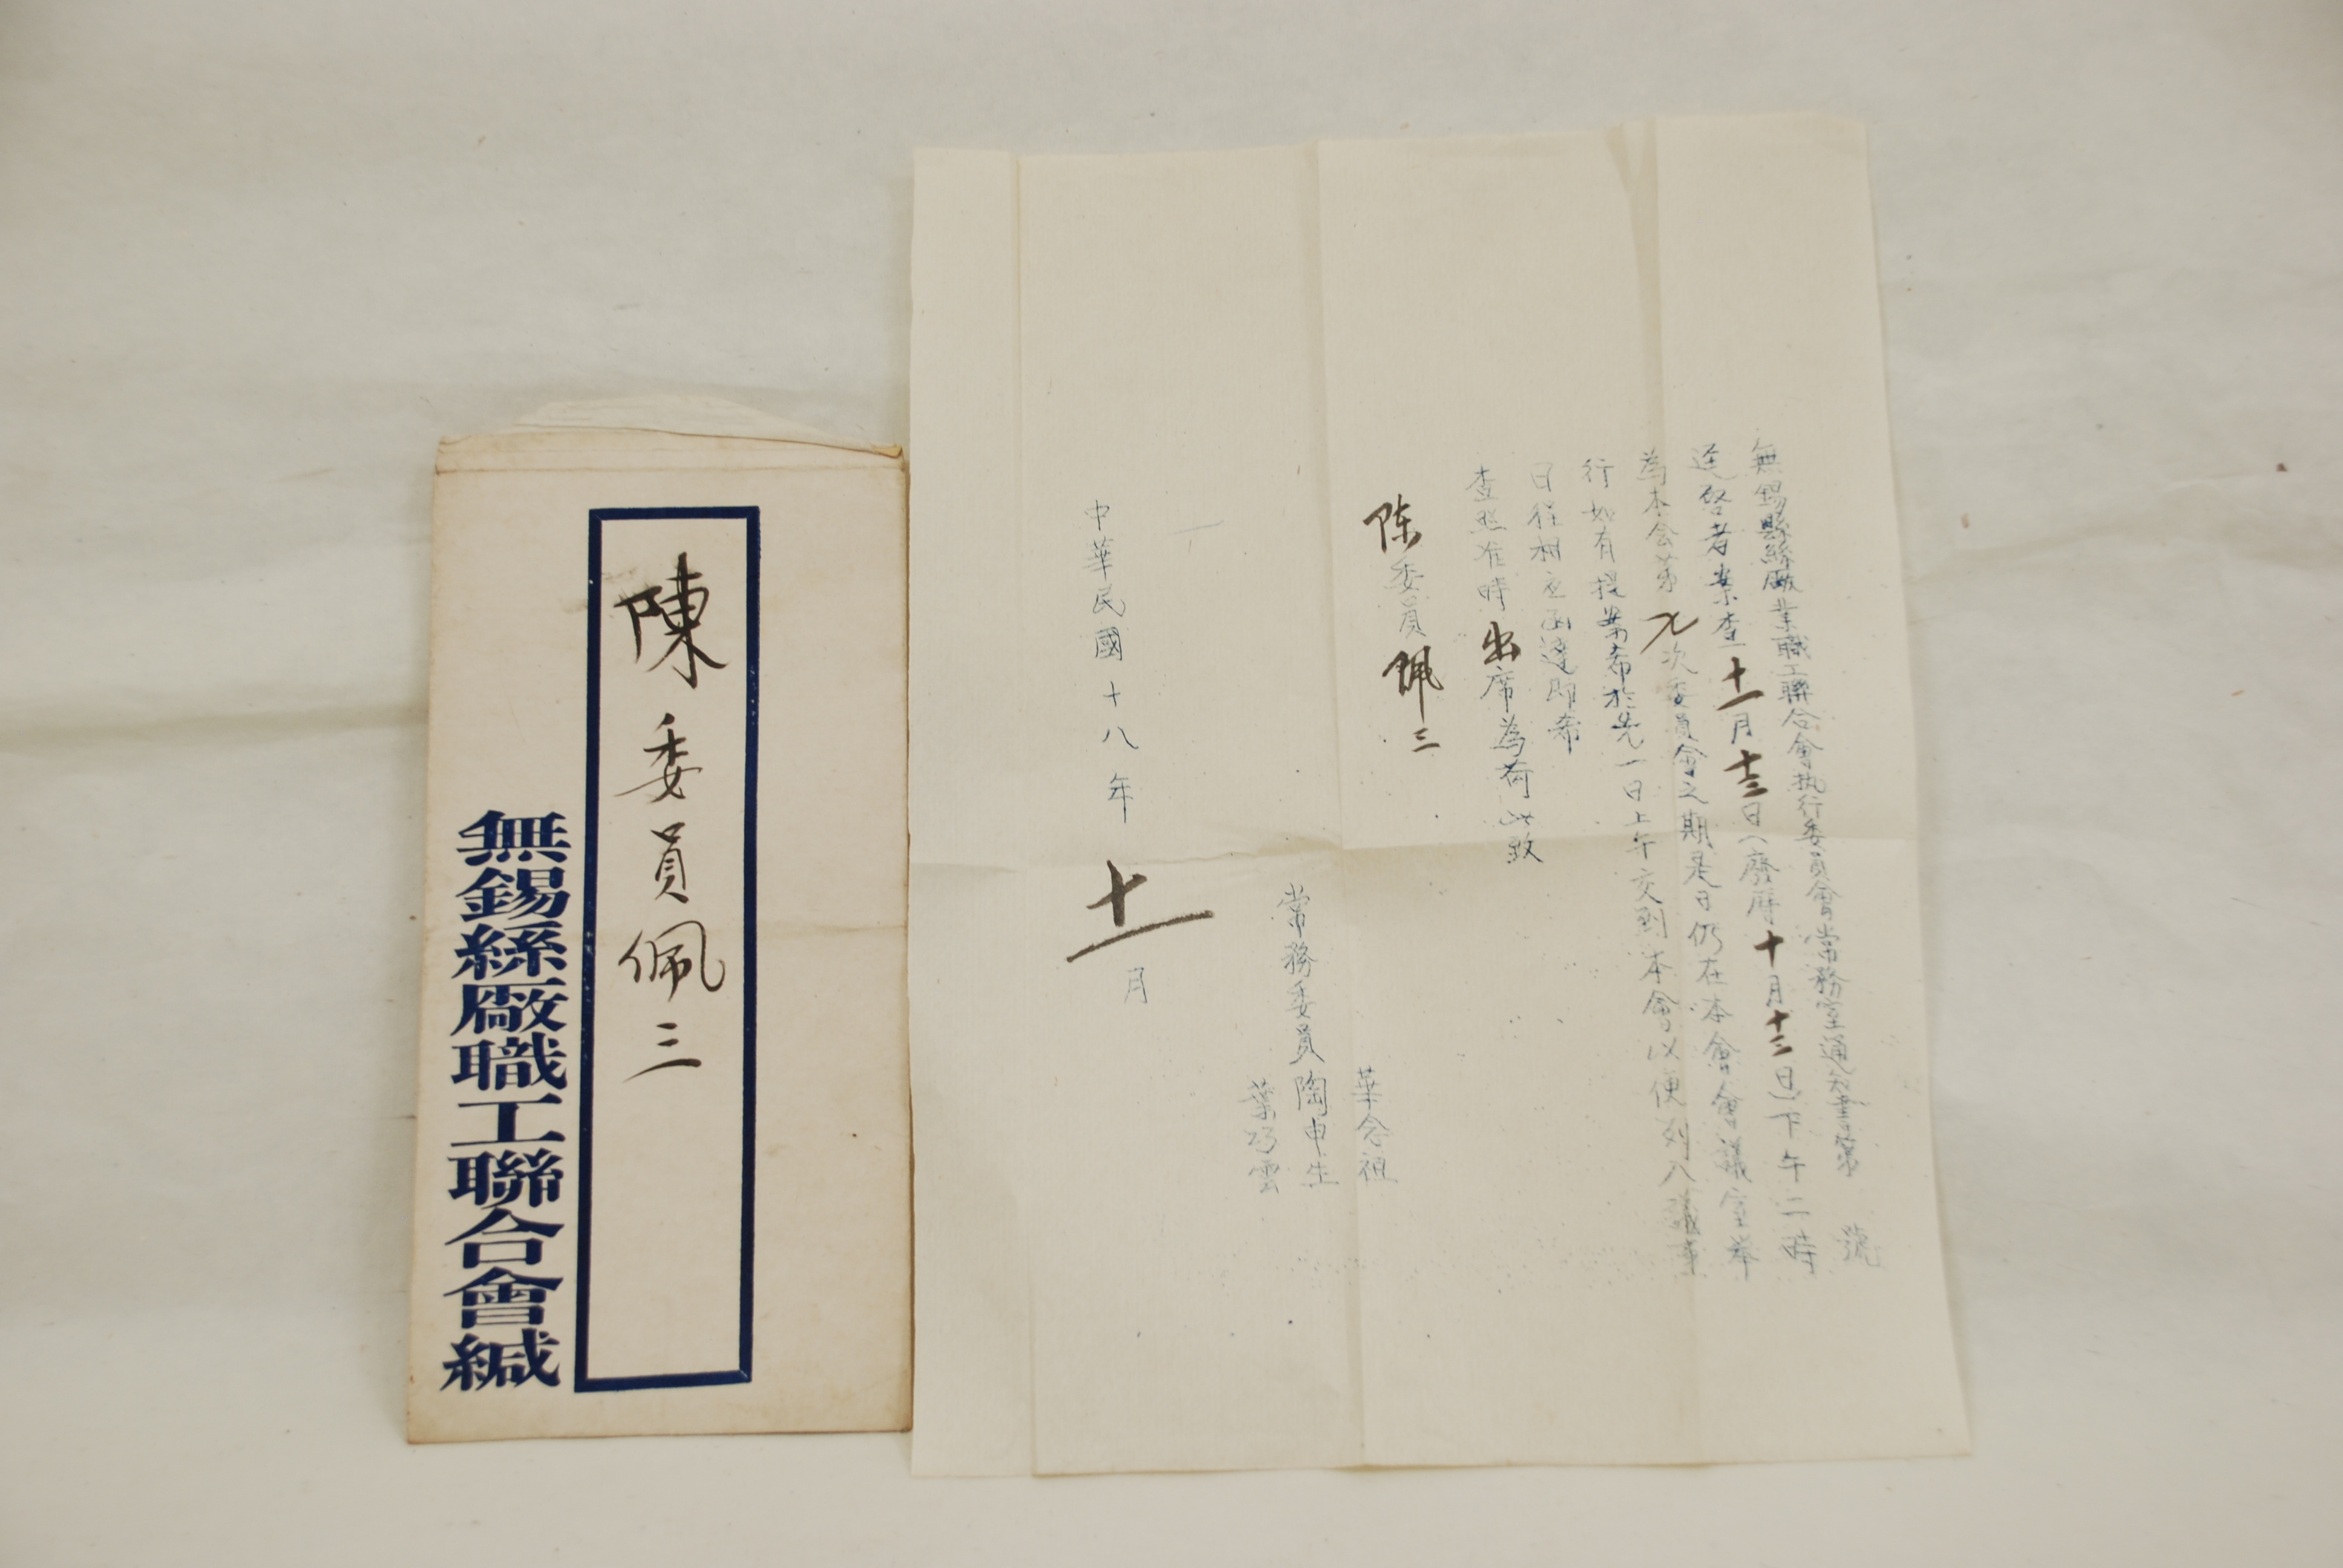 陳委員佩三
無錫絲廠職工聯合會緘
無錫縣絲廠業職工聯合會执行委員會常務室通知書第 號
逕啓者案查十一月十三日(廢厯十月十三日)下午二時
為本会第九次委員會之期是日仍在本會會議室举
行如有提案希於先一日上午交到本會以便列入議事
日程相应函達即希
查照准時出席為荷此致
陈委員佩三
華念祖
常務委員陶申生
葉巧雲
中華民國十八年十一月